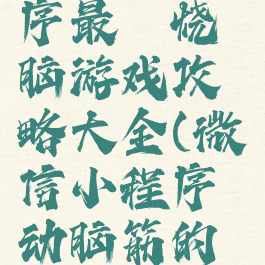 序最 烧
脑游戏攻
略大全(微
信小程序
动脑筋的